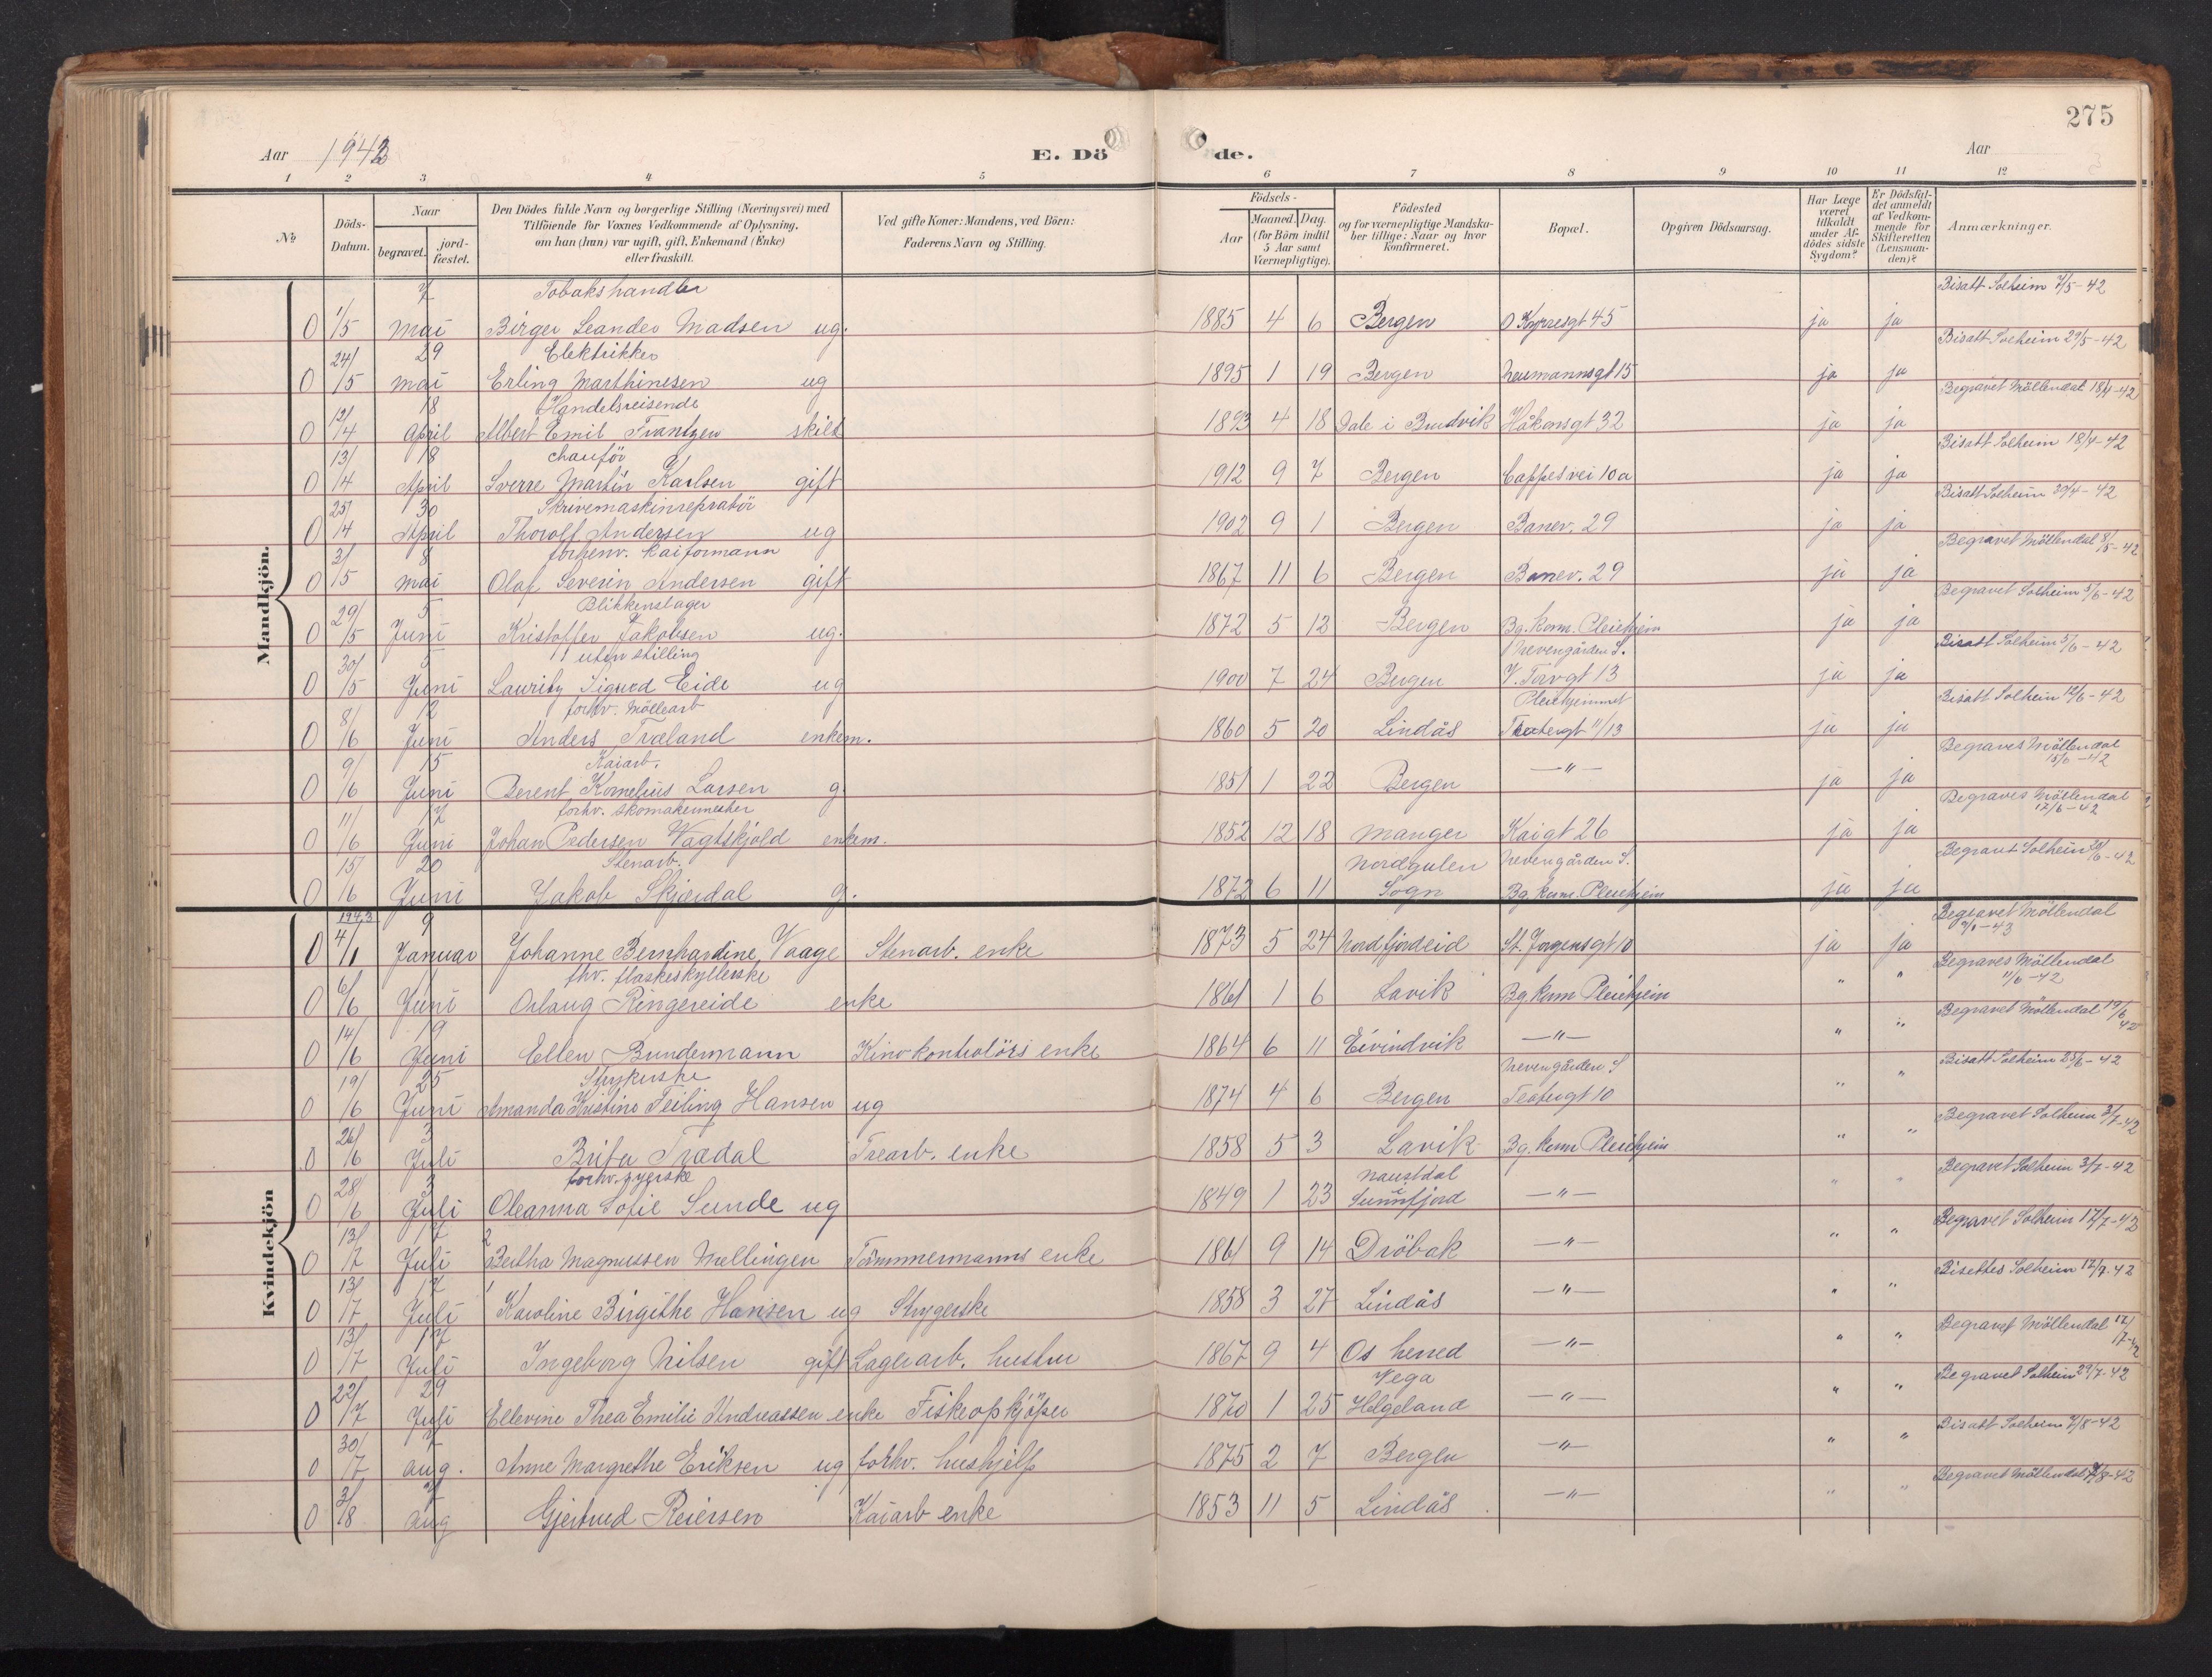 275
Aar 1942
E. Dö de.
Aar
1 2 3 4 5 6 7 8 9 10 11 12
№
Döds-Datum.
Naar begravet. jordfæstet.
Den Dödes fulde Navn og borgerlige Stilling (Næringsvei) med Tilföiende for Voxnes Vedkommende af Oplysning, om han (hun) var ugift, gift, Enkemand (Enke) eller fraskilt.
Ved gifte Koner: Mandens, ved Börn: Faderens Navn og Stilling.
Födsels- Aar Maaned. Dag. (for Börn indtil 5 Aar samt Værnepligtige).
Födested og for værnepligtige Mandskaber tillige: Naar og hvor konfirmeret.
Bopæl.
Opgiven Dödsaarsag.
Har Læge været tilkaldt under Afdödes sidste Sygdom?
Er Dödsfaldet anmeldt af Vedkommende for Skifteretten (Lensmanden)?
Anmærkninger.
Mandkjön.
7 Tobakshandler Bisatt Solheim 7/5-42
0 1/5 mai Birger Leander Madsen ug. 1885 4 6 Bergen O Kyrresgt 45 ja ja
29 Elektrikker Bisatt Solheim 29/5-42
0 24/5 mai Erling Marthinesen ug 1895 1 19 Bergen Neumannsgt 15 ja ja
18 Handelsreisende Begravet Möllendal 18/4-42
0 12/4 April Albert Emil Frantzen skilt 1893 4 18 Dale i Bruvik Håkonsgt 32 ja ja
18 chauför Bisatt Solheim 18/4-42
0 13/4 April Sverre Martin Karlsen gift 1912 9 7 Bergen Cappesvei 10a ja ja
30 Skrivemaskinrepratör Bisatt Solheim 30/4-42
0 25/4 April Thorolf Andersen ug 1902 9 1 Bergen Banev. 29 ja ja
8 forhenv. kaiformann Begravet Möllendal 8/5-42
0 3/5 mai Olaf Severin Andersen gift 1867 11 6 Bergen Banev. 29 ja ja
5 Blikkenslager Begravet Solheim 5/6-42
0 29/5 Juni Kristoffer Jakobsen ug. 1872 5 12 Bergen Bg. kom. Pleiehjem ja ja
5 uten stilling Nevengården S. Bisatt Solheim 5/6-42
0 30/5 Juni Lauritz Sigurd Eide ug 1900 7 24 Bergen V. Torvgt 13 ja ja
12 forhv. Möllearb Pleiehjemmet Bisatt Solheim 12/6-42
0 8/6 Juni Anders Træland enkem. 1860 5 20 Lindås Teatergt 11/13 ja ja
15 Kaiarb. Begraves Möllendal 15/6-42
0 9/6 Juni Berent Kornelius Larsen g. 1851 1 22 Bergen —"— ja ja
17 forhv. skomakermester Begraves Möllendal 17/6-42
0 11/6 Juni Johan Pedersen Vagtskjold enkem. 1852 12 18 Manger Kaigt 26 ja ja
20 Stenarb. Nordgulen Nevengården S. Begravet Solheim 20/6-42
0 15/6 Juni Jakob Skjerdal g. 1872 6 11 Sogn Bg. kom. Pleiehjem ja ja
Kvindekjön
1943 9 Begravet Möllendal 9/1-43
0 4/1 Januar Johanne Bernhardine Vaage Stenarb. enke 1873 5 24 Nordfjordeid St. Jörgensgt 10 ja ja
fhv. flaskeskyllerske Begraves Möllendal 11/6-42
0 6/6 Juni Orlaug Ringereide enke 1861 1 6 Lavik Bg. kom Pleiehjem " "
19 Begravet Möllendal 19/6 42
0 14/6 Juni Ellen Bundermann Kinokontrolörs enke 1864 6 11 Eivindvik —"— " "
25 Strykerske Nevengården S Bisatt Solheim 25/6-42
0 19/6 Juni Amanda Kristine Feiling Hansen ug 1874 4 6 Bergen Teatergt 10 " "
3 Begravet Solheim 3/7-42
0 26/6 Juli Brita Trædal Trearb. enke 1858 5 3 Lavik Bg. kom. Pleiehjem " "
3 forhv. syerske Naustdal i Begravet Solheim 3/7-42
0 28/6 Juli Oleanna Sofie Sunde ug 1849 1 23 Sunnfjord —"— " "
17 2 Begravet Solheim 17/7-42
0 13/7 Juli Bertha Magnussen Mellingen Tömmermanns enke 1861 9 14 Dröbak —"— " "
17 1 Bisettes Solheim 17/7.42
0 13/7 Juli Karoline Birgithe Hansen ug Strygerske 1858 3 27 Lindås —"— " "
17 Begravet Möllendal 17/7-42
0 13/7 Juli Ingeborg Nilsen gift Lagerarb. hustru 1867 9 4 Os herred —"— " "
29 Vega Begravet Solheim 29/7-42
0 22/7 Juli Ellevine Thea Emilie Andreassen enke Fiskeopkjöper 1870 1 25 Helgeland —"— " "
7 Bisatt Solheim 7/8-42
0 30/7 aug. Anne Margrethe Eriksen ug forhv. hushjelp 1875 2 7 Bergen —"— " "
7 Begravet Möllendal 7/8-42
0 3/8 aug Gjertrud Reiersen Kaiarb enke 1853 11 5 Lindås —"— " "